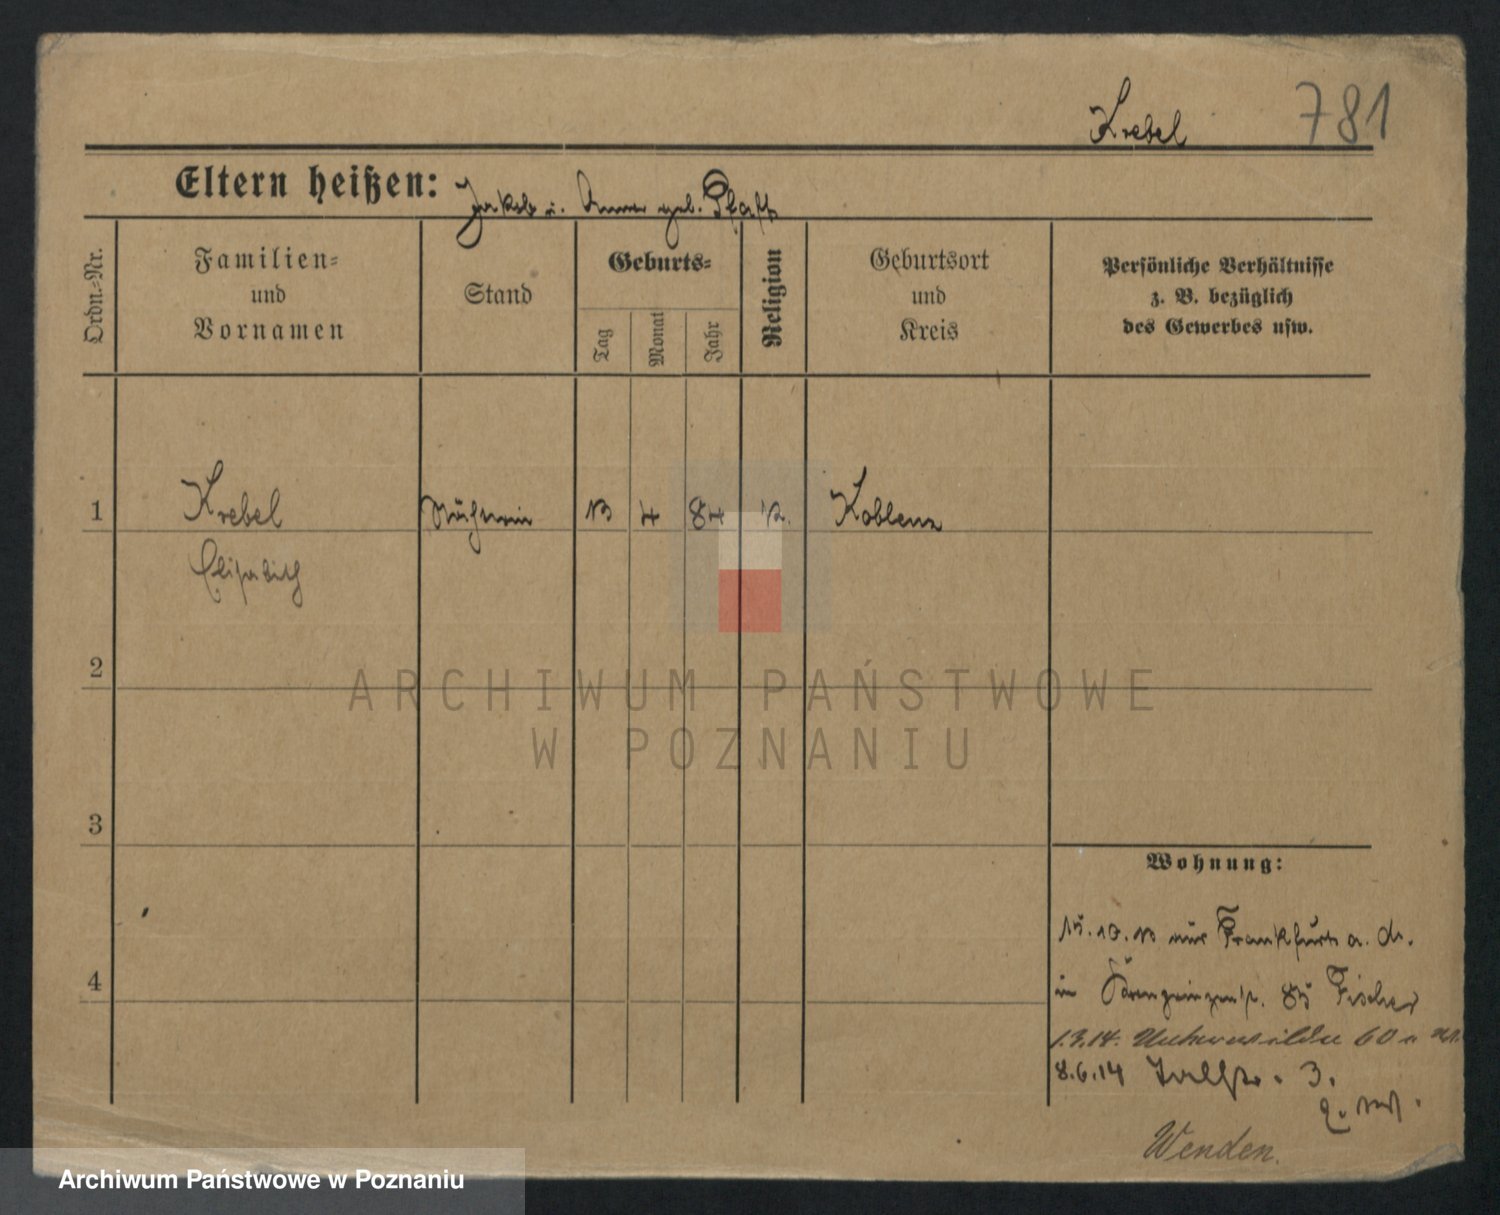 Krebel 781
Eltern heißen: Jakob u. Anna geb. Pfaff
Ordn.=Nr.
Familien=
und
Vornamen
Stand
Geburts=
Tag
Monat
Jahr
Religion
Geburtsort
und
Kreis
Persönliche Verhältnisse
z. B. bezüglich
des Gewerbes usw.
1 Krebel 13 4 84 k. Koblenz
Elisabeth
2
ARCHIWUM PAŃSTWOWE
W POZNANIU
3
Wohnung:
15.10.13 aus Frankfurt a. M.
4
in 85 Fischer
1.3.14. 60
8.6.14 3.
Wenden.
Archiwum Państwowe w Poznaniu